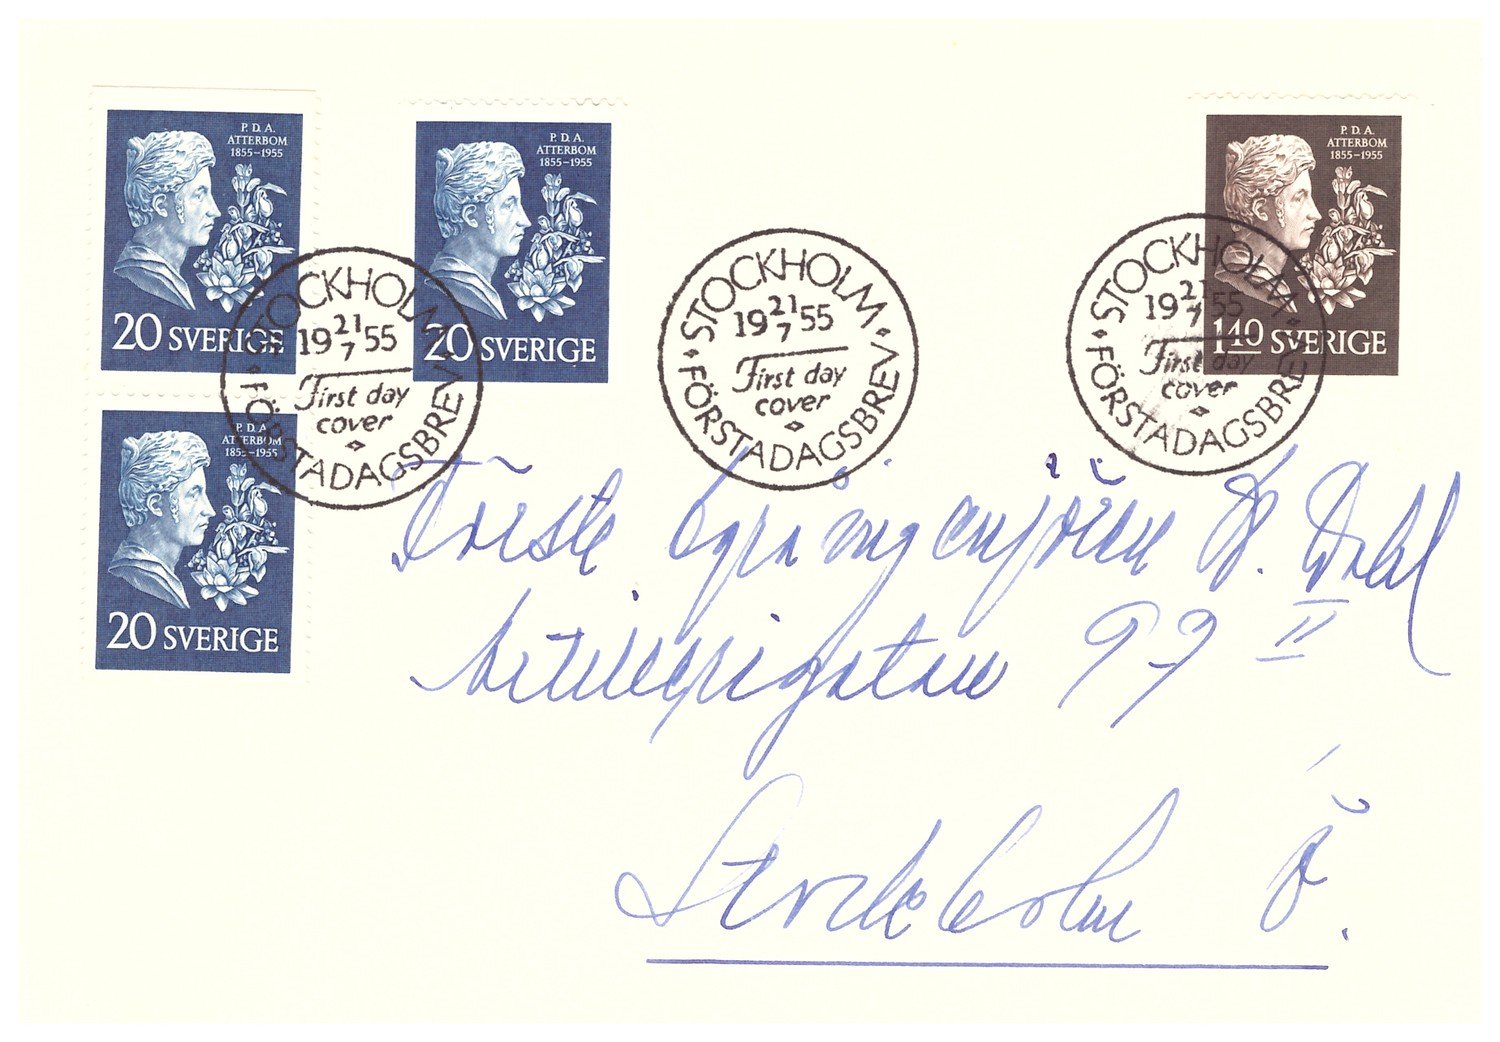 P. D. A.
ATTERBOM
1855–1955
20 SVERIGE
P. D. A.
ATTERBOM
1855–1955
20 SVERIGE
P. D. A.
ATTERBOM
1855–1955
1 40 SVERIGE
P. D. A.
ATTERBOM
1855–1955
20 SVERIGE
STOCKHOLM
19 21/7 55
First day
cover
FÖRSTADAGSBREV
STOCKHOLM
19 21/7 55
First day
cover
FÖRSTADAGSBREV
STOCKHOLM
19 21/7 55
First day
cover
FÖRSTADAGSBREV
Förste Dahl
Artillerigatan 97 II
Stockholm Ö.